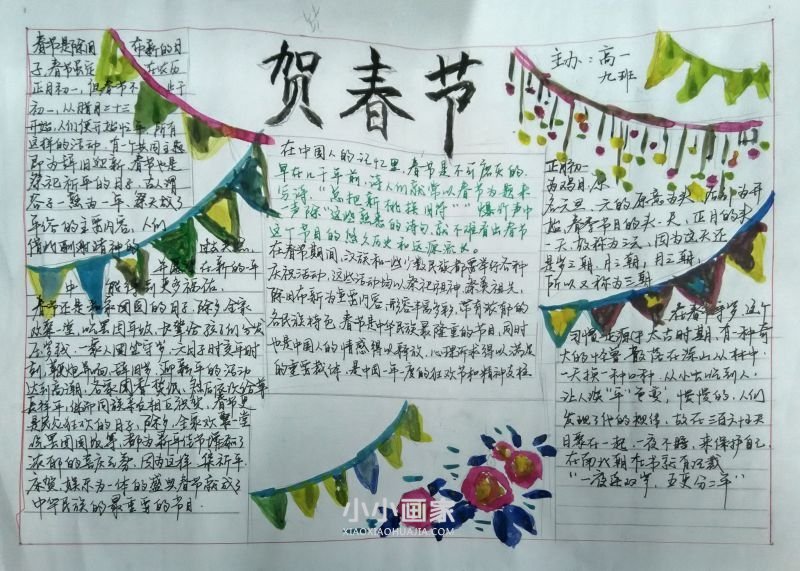 贺春节
主办：高一
九班
春节是除旧 布新的日
子，春节虽定 在农历
正月初一，但春节不 止于
初一，从腊月二十三
开始，人们便开始忙年，所有
这样的活动，有一个共同主题
即为辞旧迎新，春节也是
祭祀祈年的日子，古人谓
谷子一熟为一年，
年谷的主要内容，人们
春节还是 家团圆的日子，除夕全家
欢聚一堂，吃罢团年饭，长辈给孩子们分发
压岁钱，一家人团坐守岁，元日子时交年时
刻，鞭炮齐响，辞旧岁，迎新年的活动
达到高潮，各家
是民众狂欢的日子，除夕，全家欢聚一堂
浓郁的喜庆元素，因为这样，集祈年
庆贺、娱乐为一体的盛典春节就成了
中华民族的最重要的节日.
在中国人的记忆里，春节是不可磨灭的.
早在几千年前，诗人们就常以春节为题来
写诗，“总把新桃换旧符”“爆竹声中
一岁除”这些熟悉的诗句，就不难看出春节
这个节日的悠久历史和源远流长.
在春节期间，汉族和一些少数民族都要举行各种
庆祝活动，这些活动均以祭祀祖神、祭奠祖先，
除旧布新为重要内容，形容丰富多彩，带有浓郁的
各民族特色，春节是中华民族最隆重的节日，同时
也是中国人的情感得以释放、心理诉求得以满足
的重要载体，是中国一年度的狂欢节和精神支柱
正月初一
为鸡日，原
名元旦，元的原意为头，后引为开
始，春者节日的头一天，正月的头
一天，故称为三元，因为这天还
是岁之朝，月之朝，日之朝，
所以又称为三朝
在春节守岁，这个
习惯起源于太古时期，有一种奇
大的怪兽，散落在深山丛林中.
一天换一种口味，从小虫吃到人.
让人谈“年”色变，慢慢的，人们
发现了他的规律，故在三百六十五天
日聚在一起，一夜不睡，来保护自己.
在南北朝在书就有记载
“一夜连双岁，五更分二年”
小小画家
XIAOXIAOHUAJIA.COM